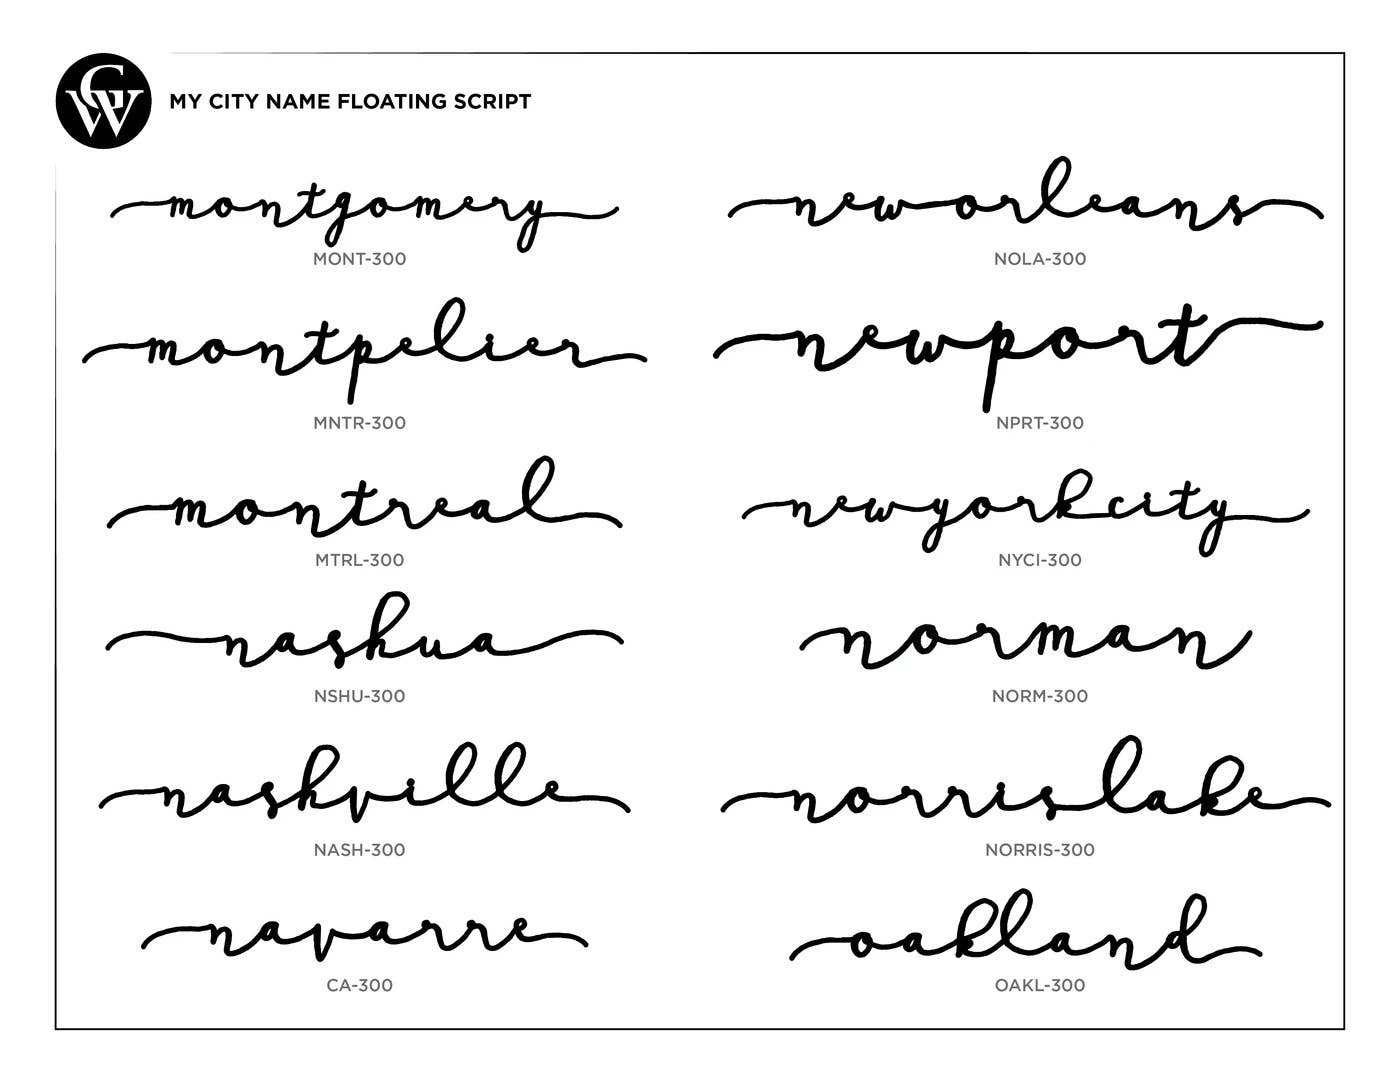 CW
MY CITY NAME FLOATING SCRIPT
montgomery
MONT-300
montpelier
MNTR-300
montreal
MTRL-300
nashua
NSHU-300
nashville
NASH-300
navarre
CA-300
new orleans
NOLA-300
newport
NPRT-300
new york city
NYCI-300
norman
NORM-300
norris lake
NORRIS-300
oakland
OAKL-300